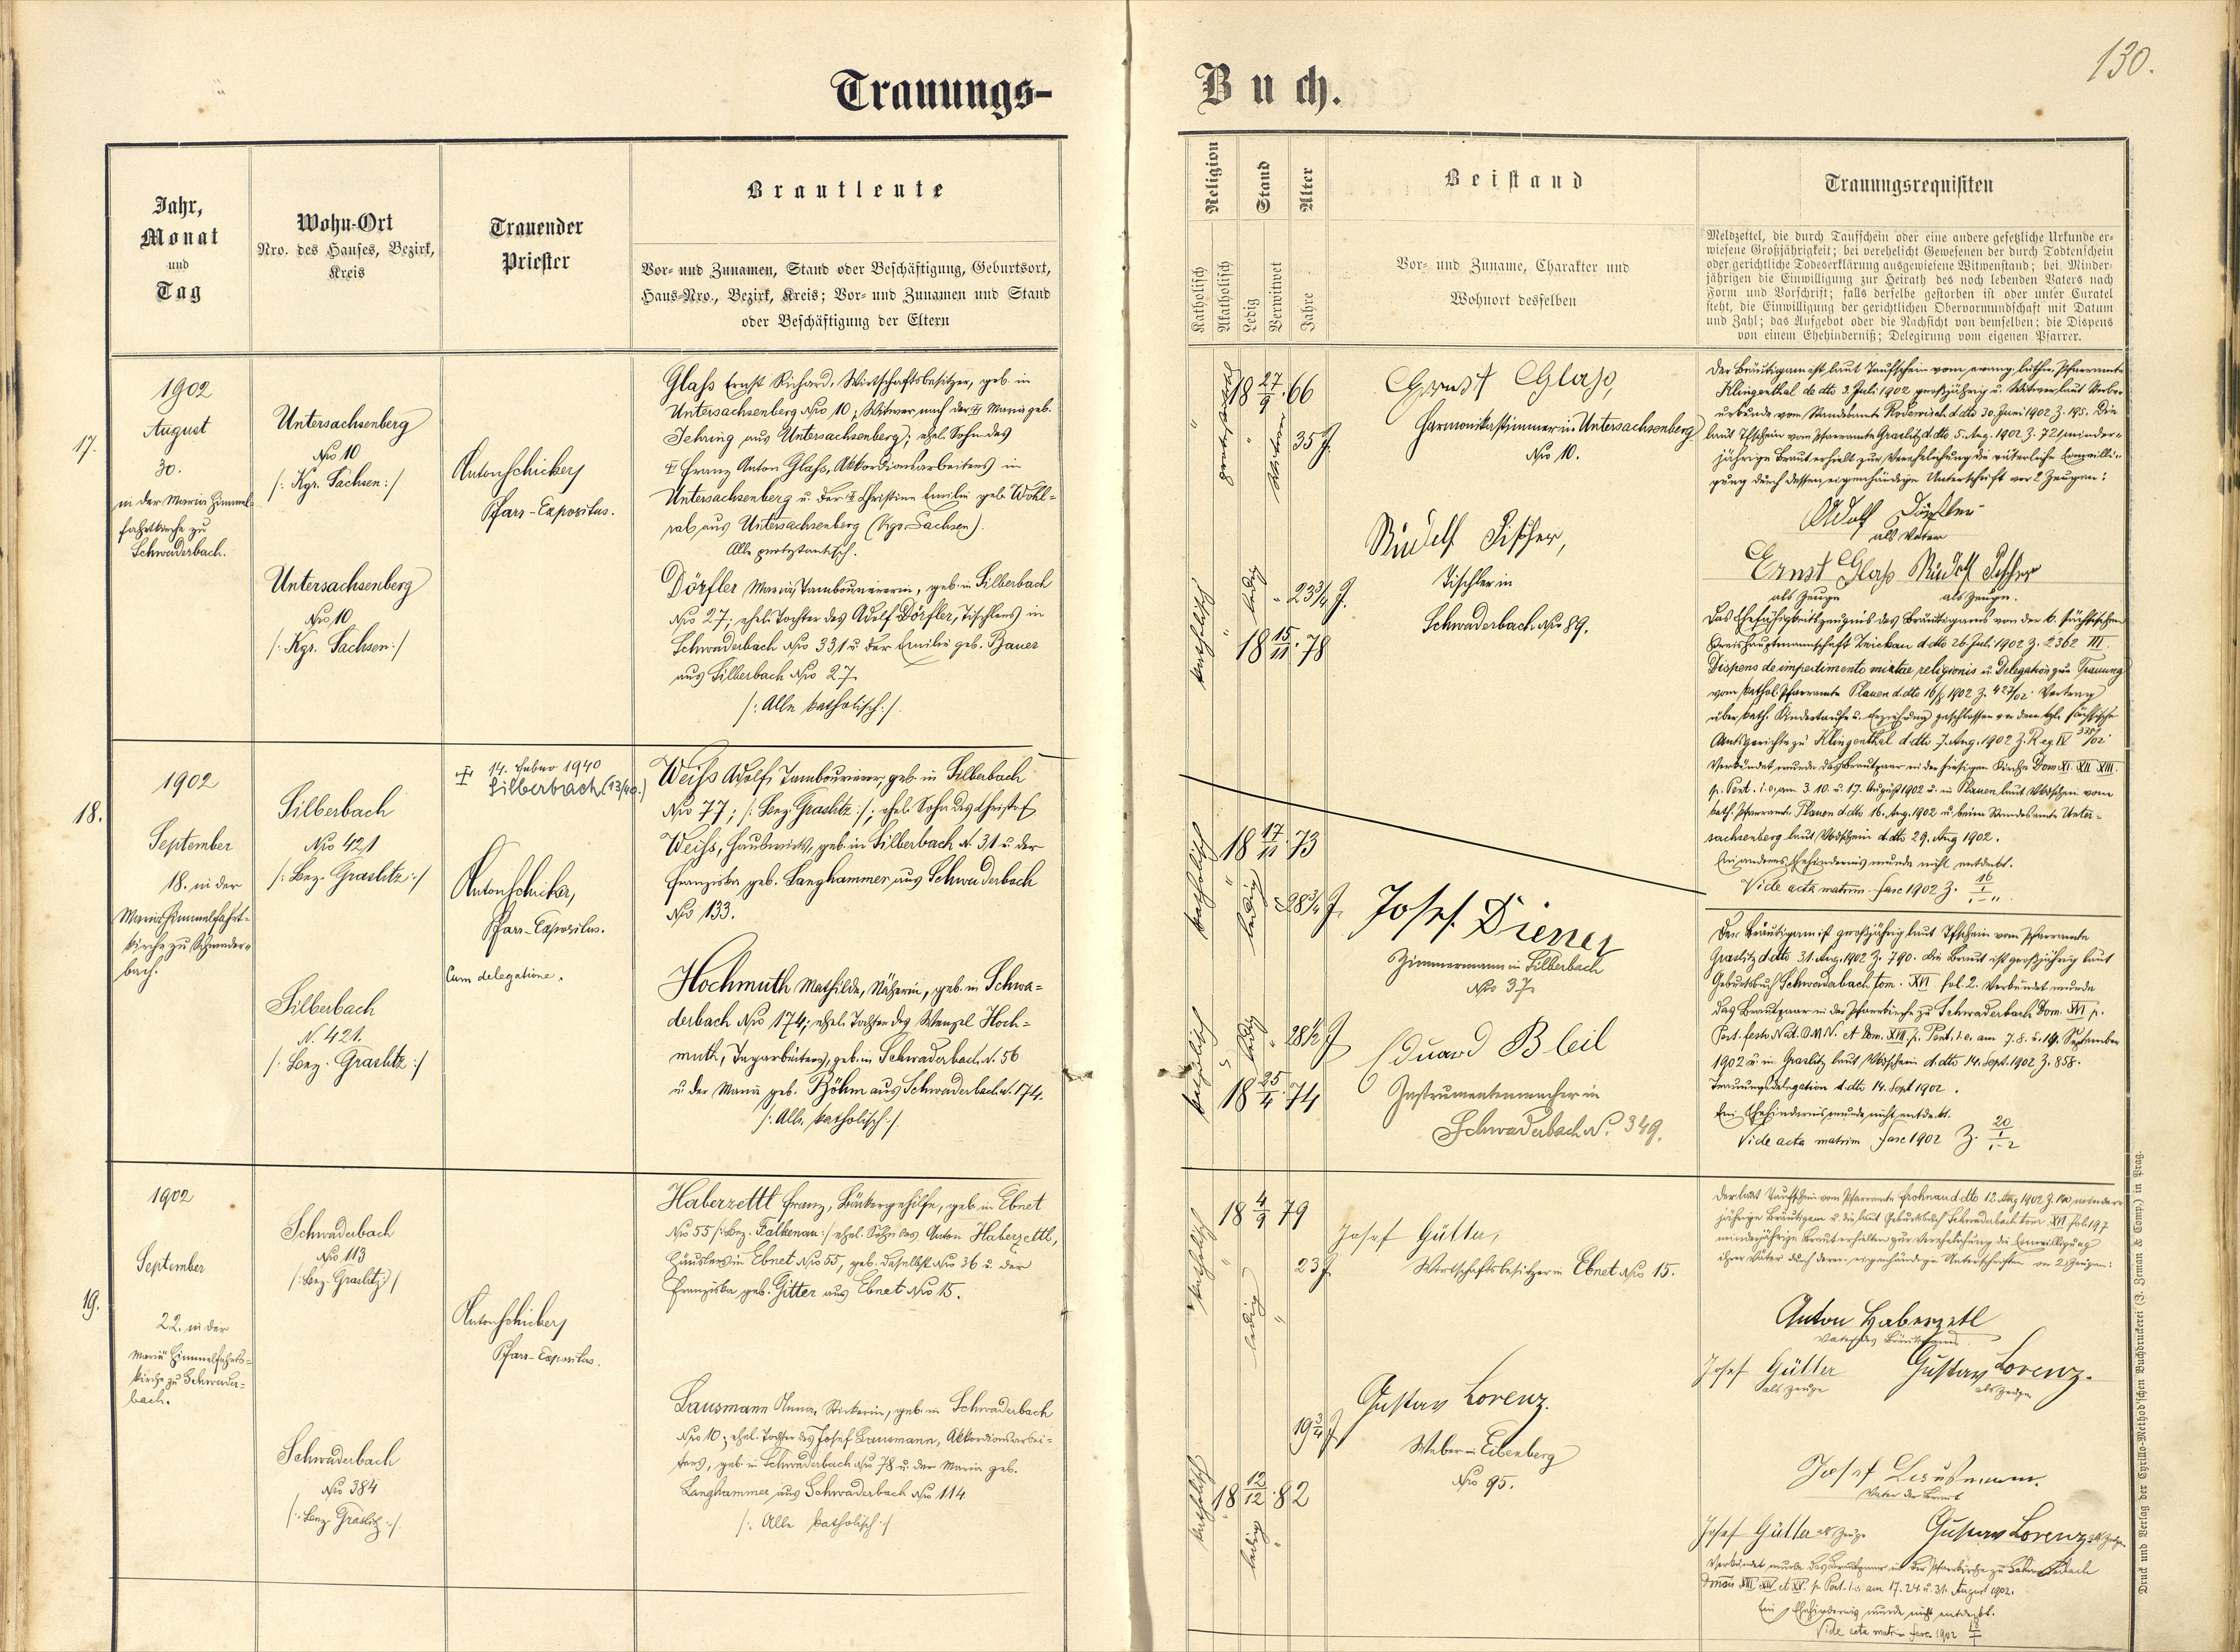 130.
Trauungs-
Buch.
Jahr,
Monat
und
Tag
Wohn-Ort
Nro. des Hauses, Bezirk,
Kreis
Trauender
Priester
Brautleute
Vor- und Zunamen, Stand oder Beschäftigung, Geburtsort,
Haus-Nro., Bezirk, Kreis; Vor- und Zunamen und Stand
oder Beschäftigung der Eltern
Religion
Katholisch
Akatholisch
Stand
Ledig
Verwitwet
Alter
Jahre
Beistand
Vor- und Zuname, Charakter und
Wohnort desselben
Trauungsrequisiten
Meldzettel, die durch Taufschein oder eine andere gesetzliche Urkunde er-
wiesene Großjährigkeit; bei verehelicht Gewesenen der durch Todtenschein
oder gerichtliche Todeserklärung ausgewiesene Witwenstand; bei Minder-
jährigen die Einwilligung zur Heirath des noch lebenden Vaters nach
Form und Vorschrift; falls derselbe gestorben ist oder unter Curatel
steht, die Einwilligung der gerichtlichen Obervormundschaft mit Datum
und Zahl; das Aufgebot oder die Nachsicht von demselben; die Dispens
von einem Ehehinderniß; Delegirung vom eigenen Pfarrer.
17.
1902
August
30.
in der Maria Himmel-
fahrtkirche zu
Schwaderbach.
Untersachsenberg
Nro 10
/: Kgr. Sachsen :/
Untersachsenberg
Nro 10
/: Kgr. Sachsen :/
Anton Schicker,
Pfarr-Expositus.
Glass Ernst Richard, Wirtschaftsbesitzer, geb. in
Untersachsenberg Nro 10, Witwer nach der † Maria geb.
Jehring aus Untersachsenberg; ehel. Sohn des
† Franz Anton Glass, Akkordionarbeiters in
Untersachsenberg u. der † Christine Emilie geb. Wohl-
rab aus Untersachsenberg (Kgr. Sachsen).
Alle protestantisch.
Dörfler Maria, Tambouriererin, geb. in Silberbach
Nro 27; ehel. Tochter des Adolf Dörfler, Tischlers in
Schwaderbach Nro 331 u. der Emilie geb. Bauer
aus Silberbach Nro 27
/: Alle katholisch :/
18 27/9 66
35 J.
ledig
23 3/4 J.
katholisch
18 15/11 78
Ernst Glass,
Harmonikastimmer in Untersachsenberg
Nro 10.
Rudolf Fischer,
Tischler in
Schwaderbach Nro 89.
Der Bräutigam ist laut Taufschein vom evang. luther. Pfarramte
Klingenthal de dto 3. Juli 1902 großjährig u. Witwer laut Sterbe-
urkunde vom Standesamte Rodewisch d. dto 30. Juni 1902 Z. 195. Die
laut Tfschein vom Pfarramte Graslitz d. dto 5. Aug. 1902 Z. 721 minder-
jährige Braut erhielt zur Verehelichung die väterliche Einwilli-
gung durch dessen eigenhändige Unterschrift vor 2 Zeugen:
Adolf Dörfler
als Vater
Ernst Glass Rudolf Fischer
als Zeuge als Zeuge.
Das Ehefähigkeitszeugnis des Bräutigams von der k. sächsischen
Kreishauptmannschaft Zwickau d. dto 26. Juli 1902 Z. 2362 III.
Dispens de impedimento mixtae religionis u. Delegation zur Trauung
vom kathol. Pfarramte Plauen d. dto 16/8 1902 Z. 427/02. Vertrag
über kath. Kindertaufe u. Erziehung geschlossen vor dem kgl. sächsischen
Amtsgerichte zu Klingenthal d. dto 7. Aug. 1902 Z. Reg. IV
Verkündet wurde das Brautpaar in der hiesigen Kirche Dom. XI XII XIII.
p. Pent. i. e. am 3. 10. u. 17. August 1902 u. in Plauen laut Vkdschein vom
kath. Pfarramte Plauen d. dto 16. Aug. 1902 u. beim Standesamte Unter-
sachsenberg laut Vkdschein d. dto 29. Aug 1902.
Ein anderes Ehehindernis wurde nicht entdeckt.
Vide acta matrim. fasc 1902 Z. 16/I
18.
1902
September
18. in der
Maria Himmelfahrt-
kirche zu Schwader-
bach.
Silberbach
Nro 421
/: Bez. Graslitz :/
Silberbach
N. 421.
/: Bez. Graslitz :/
† 14. Feber 1940
Silberbach (13/40.)
Anton Schicker,
Pfarr-Expositus.
Cum delegatione.
Weiss Adolf, Tambourierer, geb. in Silberbach
Nro 77; /: Bez. Graslitz :/; ehel. Sohn des Christof
Weiss, Hauswirts, geb. in Silberbach N. 31 u. der
Franziska geb. Langhammer aus Schwaderbach
Nro 133.
Hochmuth Mathilde, Näherin, geb. in Schwa-
derbach Nro 174; ehel. Tochter des Wenzel Hoch-
muth, Tagarbeiters, geb. in Schwaderbach N. 56
u. der Maria geb. Böhm aus Schwaderbach N. 174.
/: Alle katholisch :/
katholisch
18 17/11 73
ledig
28 3/4 J.
katholisch
ledig
28 1/2 J
18 25/4 74
Josef Diener
Zimmermann in Silberbach
Nro 37
Eduard Bleil
Instrumentenmacher in
Schwaderbach N. 349.
Der Bräutigam ist großjährig laut Tfschein vom Pfarramte
Graslitz d. dto 31. Aug. 1902 Z. 790. Die Braut ist großjährig laut
Geburtsbuch Schwaderbach tom. XVI fol. 2. Verkündet wurde
das Brautpaar in der Pfarrkirche zu Schwaderbach Dom. XVI p.
Pent. festo Nat. B.M.V. et Dom. XVII p. Pent. i. e. am 7. 8. u. 14. September
1902 u. in Graslitz laut Vkdschein d. dto 14. Sept. 1902 Z. 858.
Trauungsdelegation d. dto 14. Sept 1902.
Ein Ehehindernis wurde nicht entdeckt.
Vide acta matrim. fasc 1902 Z. 20/I 1-2
19.
1902
September
22. in der
Mariä Himmelfahrts-
kirche zu Schwader-
bach.
Schwaderbach
Nro 113
/: Bez. Graslitz :/
Schwaderbach
Nro 384
/: Bez. Graslitz :/
Anton Schicker,
Pfarr-Expositus.
Haberzettl Franz, Bäckergehilfe, geb. in Ebnet
Nro 55 /: Bez. Falkenau :/ ehel. Sohn des Anton Haberzettl,
Häuslers in Ebnet Nro 55, geb. daselbst Nro 36 u. der
Franziska geb. Gitter aus Ebnet Nro 15.
Lausmann Anna, Stickerin, geb. in Schwaderbach
Nro 10; ehel. Tochter des Josef Lausmann, Akkordionarbei-
ters, geb. in Schwaderbach Nro 78 u. der Maria geb.
Langhammer aus Schwaderbach Nro 114
/: Alle katholisch :/
18 4/9 79
katholisch
23 J
ledig
19 3/4 J
katholisch
18 12/12 82
ledig
Josef Gütter,
Wirtschaftsbesitzer in Ebnet Nro 15.
Gustav Lorenz.
Weber in Eibenberg
Nro 95.
Der laut Taufschein vom Pfarramte Frohnau d. dto 12. Aug 1902 Z. 140 minder-
jährige Bräutigam u. die laut Geburtsbuch Schwaderbach tom. XVI fol. 197
minderjährige Braut erhielten zur Verehelichung die Einwilligung
ihrer Väter durch deren eigenhändige Unterschriften vor 2 Zeugen:
Anton Haberzetl
Vater des Bräutigams
Josef Gütter Gustav Lorenz.
als Zeuge als Zeuge
Josef Lausmann.
Vater der Braut
Josef Gütter als Zeuge Gustav Lorenz als Zeuge
Verkündet wurde das Brautpaar in der Pfarrkirche zu Schwaderbach
XIII XIV et XV. p. Pent. i. e. am 17. 24. u. 31. August 1902.
Ein Ehehindernis wurde nicht entdeckt.
Vide acta matrim fasc. 1902
Druck und Verlag der Cyrillo-Method'schen Buchdruckerei (J. Zeman & Comp.) in Prag.